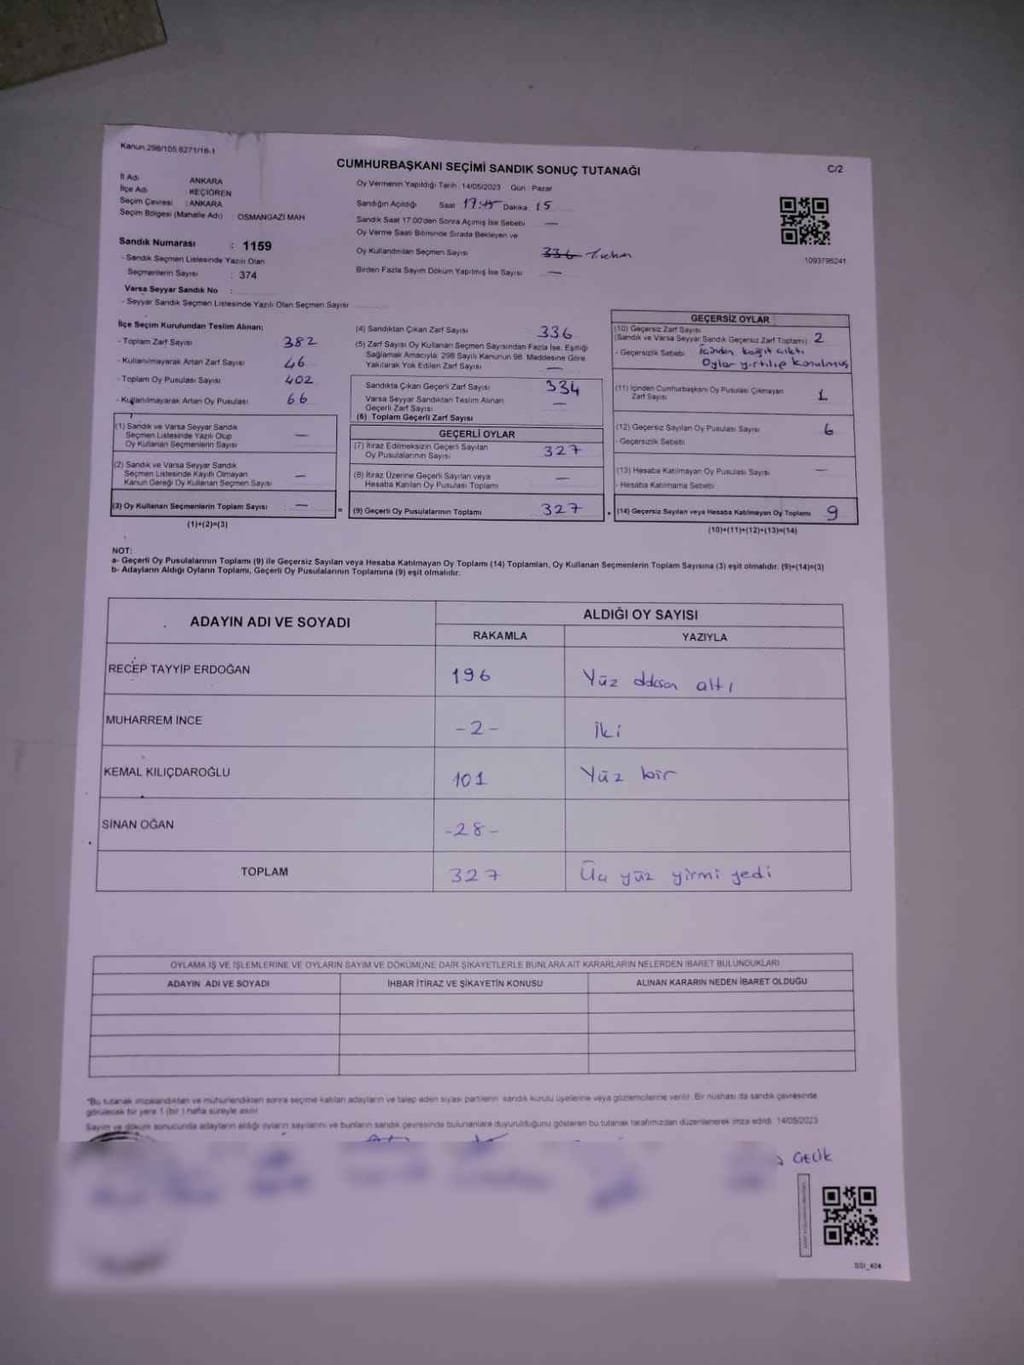 Kanun.298/105.6271/16-1
CUMHURBAŞKANI SEÇİMİ SANDIK SONUÇ TUTANAĞI
C/2
İl Adı : ANKARA
İlçe Adı : KEÇİÖREN
Seçim Çevresi : ANKARA
Seçim Bölgesi (Mahalle Adı) : OSMANGAZİ MAH
Sandık Numarası : 1159
- Sandık Seçmen Listesinde Yazılı Olan
Seçmenlerin Sayısı : 374
Varsa Seyyar Sandık No :
- Seyyar Sandık Seçmen Listesinde Yazılı Olan Seçmen Sayısı
Oy Vermenin Yapıldığı Tarih : 14/05/2023 Gün : Pazar
Sandığın Açıldığı Saat 17:15 Dakika 15
Sandık Saat 17:00'den Sonra Açılmış İse Sebebi —
Oy Verme Saati Bitiminde Sırada Bekleyen ve
Oy Kullandırılan Seçmen Sayısı 336
Birden Fazla Sayım Döküm Yapılmış İse Sayısı —
1093795241
İlçe Seçim Kurulundan Teslim Alınan:
- Toplam Zarf Sayısı 382
- Kullanılmayarak Artan Zarf Sayısı 46
- Toplam Oy Pusulası Sayısı 402
- Kullanılmayarak Artan Oy Pusulası 66
(1) Sandık ve Varsa Seyyar Sandık
Seçmen Listesinde Yazılı Olup
Oy Kullanan Seçmenlerin Sayısı —
(2) Sandık ve Varsa Seyyar Sandık
Seçmen Listesinde Kayıtlı Olmayan
Kanun Gereği Oy Kullanan Seçmen Sayısı —
(3) Oy Kullanan Seçmenlerin Toplam Sayısı —
(1)+(2)=(3)
(4) Sandıktan Çıkan Zarf Sayısı 336
(5) Zarf Sayısı Oy Kullanan Seçmen Sayısından Fazla İse, Eşitliği
Sağlamak Amacıyla; 298 Sayılı Kanunun 98. Maddesine Göre
Yakılarak Yok Edilen Zarf Sayısı —
Sandıkta Çıkan Geçerli Zarf Sayısı 334
Varsa Seyyar Sandıktan Teslim Alınan
Geçerli Zarf Sayısı —
(6) Toplam Geçerli Zarf Sayısı
GEÇERLİ OYLAR
(7) İtiraz Edilmeksizin Geçerli Sayılan
Oy Pusulalarının Sayısı 327
(8) İtiraz Üzerine Geçerli Sayılan veya
Hesaba Katılan Oy Pusulası Toplamı —
= (9) Geçerli Oy Pusulalarının Toplamı 327
GEÇERSİZ OYLAR
(10) Geçersiz Zarf Sayısı
(Sandık ve Varsa Seyyar Sandık Geçersiz Zarf Toplamı) 2
- Geçersizlik Sebebi : İçinden kağıt çıktı
Oylar yırtılıp konulmuş
(11) İçinden Cumhurbaşkanı Oy Pusulası Çıkmayan
Zarf Sayısı 1
(12) Geçersiz Sayılan Oy Pusulası Sayısı 6
- Geçersizlik Sebebi
(13) Hesaba Katılmayan Oy Pusulası Sayısı —
- Hesaba Katılmama Sebebi
+ (14) Geçersiz Sayılan veya Hesaba Katılmayan Oy Toplamı 9
(10)+(11)+(12)+(13)=(14)
NOT:
a- Geçerli Oy Pusulalarının Toplamı (9) ile Geçersiz Sayılan veya Hesaba Katılmayan Oy Toplamı (14) Toplamları, Oy Kullanan Seçmenlerin Toplam Sayısına (3) eşit olmalıdır. (9)+(14)=(3)
b- Adayların Aldığı Oyların Toplamı, Geçerli Oy Pusulalarının Toplamına (9) eşit olmalıdır.
ADAYIN ADI VE SOYADI
ALDIĞI OY SAYISI
RAKAMLA YAZIYLA
RECEP TAYYİP ERDOĞAN 196 Yüz doksan altı
MUHARREM İNCE -2- İki
KEMAL KILIÇDAROĞLU 101 Yüz bir
SİNAN OĞAN -28-
TOPLAM 327 Üç yüz yirmi yedi
OYLAMA İŞ VE İŞLEMLERİNE VE OYLARIN SAYIM VE DÖKÜMÜNE DAİR ŞİKAYETLERLE BUNLARA AİT KARARLARIN NELERDEN İBARET BULUNDUKLARI
ADAYIN ADI VE SOYADI İHBAR İTİRAZ VE ŞİKAYETİN KONUSU ALINAN KARARIN NEDEN İBARET OLDUĞU
*Bu tutanak imzalandıktan ve mühürlendikten sonra seçime katılan adayların ve talep eden siyasi partilerin sandık kurulu üyelerine veya gözlemcilerine verilir. Bir nüshası da sandık çevresinde
görülecek bir yere 1 (bir) hafta süreyle asılır.
Sayım ve döküm sonucunda adayların aldığı oyların sayılarını ve bunların sandık çevresinde bulunanlara duyurulduğunu gösteren bu tutanak tarafımızdan düzenlenerek imza edildi. 14/05/2023
ÇELİK
SSI_404